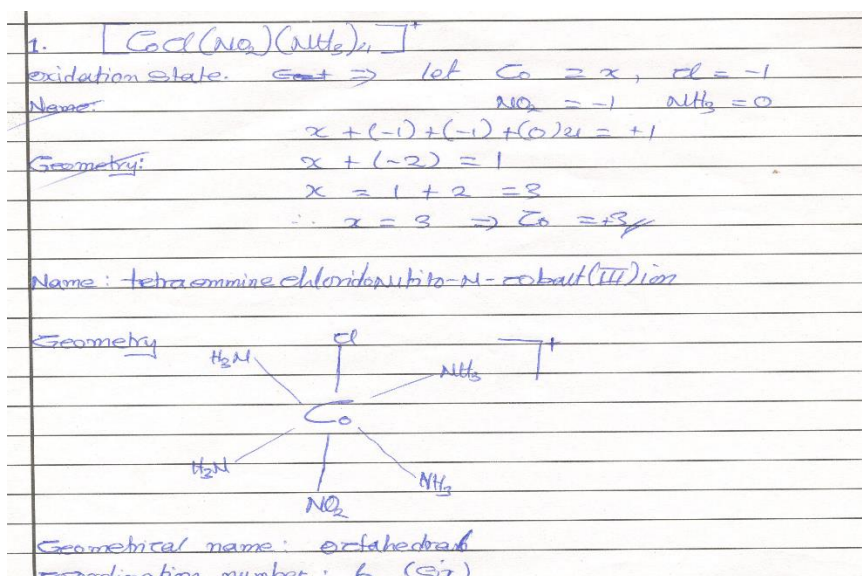 1. [CoCl(NO2)(NH3)4]+
oxidation state. ⇒ let Co = x, Cl = -1
Name: NO2 = -1 NH3 = 0
x + (-1) + (-1) + (0)4 = +1
Geometry: x + (-2) = 1
x = 1 + 2 = 3
∴ x = 3 ⇒ Co = +3
Name: tetraamminechloridonitrito-N-cobalt(III) ion
Geometry Cl ]+
H3N NH3
Co
H3N NH3
NO2
Geometrical name: octahedral
coordination number: 6 (six)